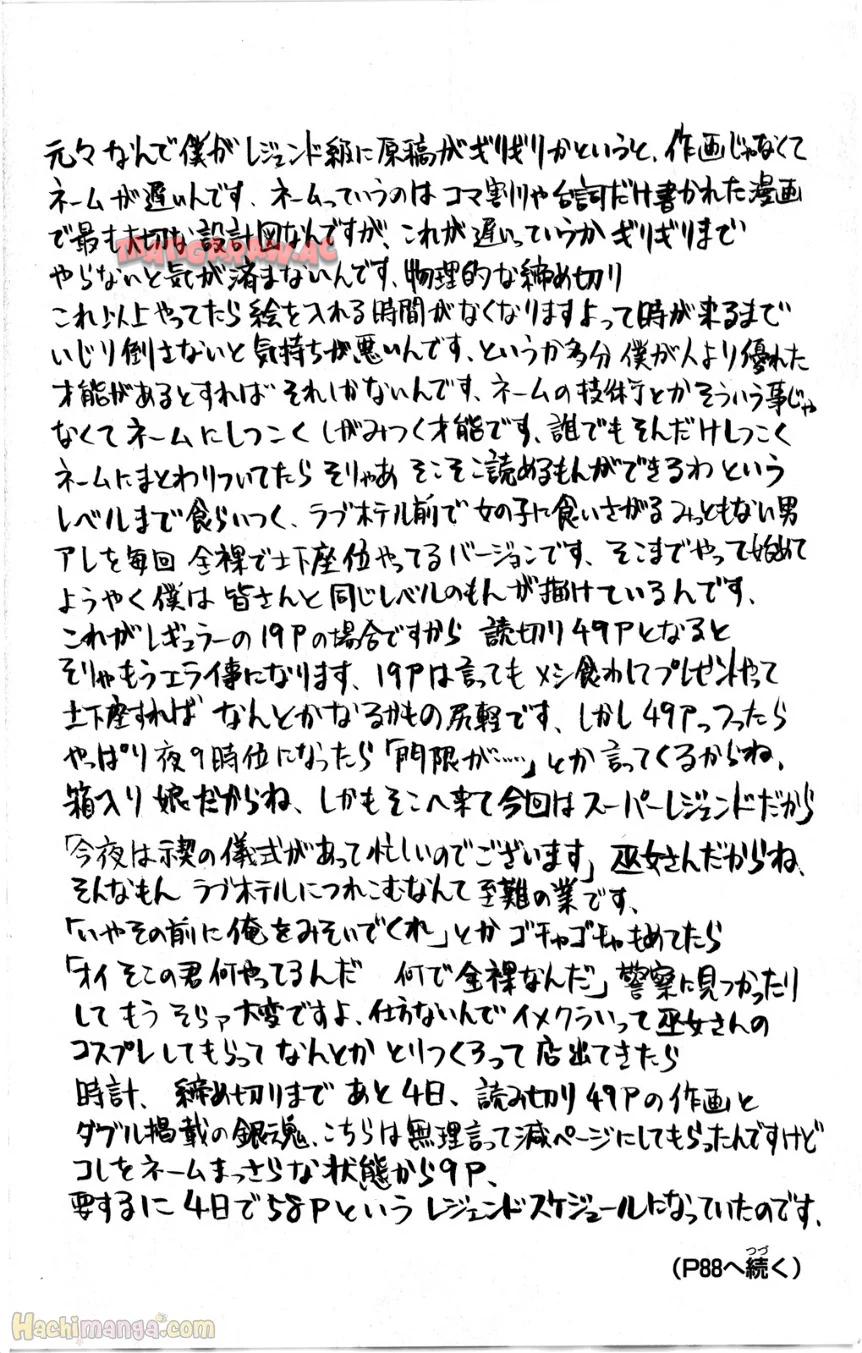 元々なんで僕がレジェンド級に原稿がギリギリかというと、作画じゃなくて
ネームが遅いんです、ネームっていうのはコマ割りや台詞だけ書かれた漫画
で最も大切な設計図なんですが、これが遅いっていうかギリギリまで
MANGARAW.AC
やらないと気が済まないんです、物理的な締め切り
これ以上やってたら絵を入れる時間がなくなりますよって時が来るまで
いじり倒さないと気持ちが悪いんです、というか多分僕が人より優れた
才能があるとすればそれしかないんです、ネームの技術とかそういう事じゃ
なくてネームにしつこくしがみつく才能です、誰でもそんだけしつこく
ネームにまとわりついてたらそりゃあそこそこ読めるもんができるわという
レベルまで食らいつく、ラブホテル前で女の子に食いさがるみっともない男
アレを毎回全裸で土下座位やってるバージョンです、そこまでやって始めて
ようやく僕は皆さんと同じレベルのもんが描けているんです、
これがレギュラーの19Pの場合ですから読切り49Pとなると
そりゃもうエライ事になります、19Pは言ってもメシ食わしてプレゼントやって
土下座すればなんとかなるかもの尻軽です、しかし49Pっつったら
やっぱり夜9時位になったら「門限が……」とか言ってくるからね、
箱入り娘だからね、しかもそこへ来て今回はスーパーレジェンドだから
「今夜は禊の儀式があって忙しいのでございます」巫女さんだからね、
そんなもんラブホテルにつれこむなんて至難の業です、
「いやその前に俺をみそいでくれ」とかゴチャゴチャもめてたら
「オイそこの君何やってるんだ　何で全裸なんだ」警察に見つかったり
してもうそらァ大変ですよ、仕方ないんでイメクラいって巫女さんの
コスプレしてもらってなんとかとりつくろって店出てきたら
時計、締め切りまであと4日、読み切り49Pの作画と
ダブル掲載の銀魂、こちらは無理言って減ページにしてもらったんですけど
コレをネームまっさらな状態から9P、
要するに4日で58Pというレジェンドスケジュールになっていたのです、
(P88へ続く)
つづ
Hachimanga.com